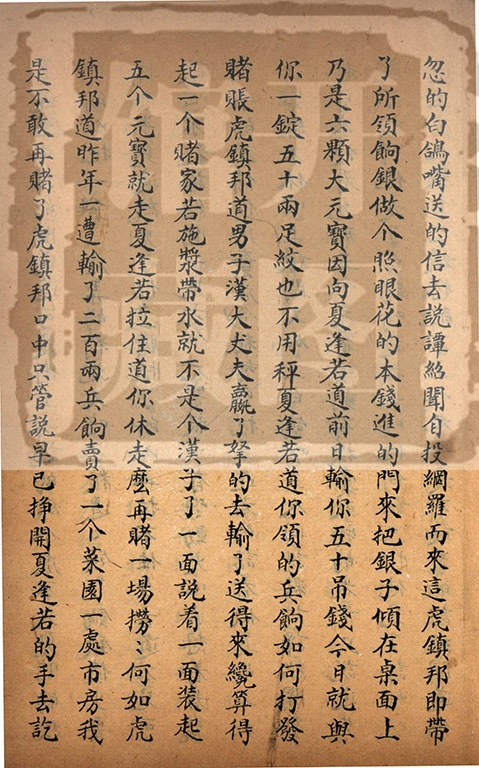 忽的白鴿嘴送的信去說譚紹聞自投網羅而來這虎鎮邦即帶
了所領餉銀做个照眼花的本錢進的門來把銀子傾在桌面上
乃是六顆大元寶因向夏逢若道前日輸你五十吊錢今日就與
你一錠五十兩足紋也不用秤夏逢若道你領的兵餉如何打發
賭賬虎鎮邦道男子漢大丈夫贏了拏的去輸了送得來纔算得
起一个賭家若施漿帶水就不是个漢子了一面說着一面裝起
五个元寶就走夏逢若拉住道你休走麽再賭一場撈〻何如虎
鎮邦道昨年一遭輸了二百兩兵餉賣了一个菜園一處市房我
是不敢再賭了虎鎮邦口中只管説早已挣開夏逢若的手去訖